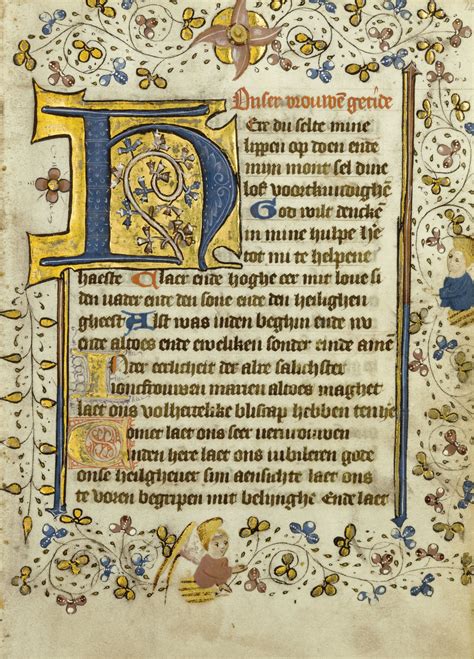 Onser vrouwē getide
Ere du selte mine
lippen op doen ende
mijn mont sel dine
lof voortkundighē
God wilt dencke͂
in mine hulpe he
tot mi te helpene
haeste Glaer ende hoghe eer mit loue si
den uader ende den sone ende den heilighen
gheest Alst was inden beghin ende nv
ende altoes ende ewelikken sonder einde amē
Inder eerlicheit der alre salichster
ioncfrouwen marien altoes maghet
laet ons volhertelike bliscap hebben
Comet laet ons seer vervrouwen
inden here laet ons iubileren gode
onse heilgheuer sijn aensichte laet ons
te voren begripen mit belijnghē Ende laet